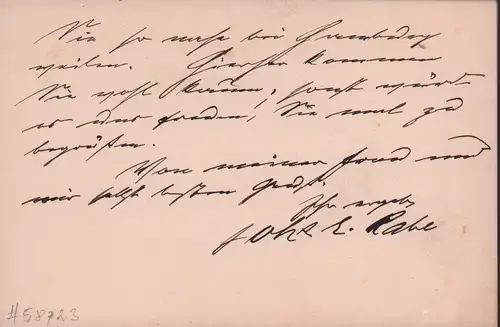 Sie so nahe bei Hamburg
weilen. Hierher kommen
Sie wohl kaum, sonst würde
es uns freuen, Sie mal zu
begrüßen.
Von meiner Frau und
mir selbst besten Gruß.
Ihr ergeb
Johs E. Rabe
#58723